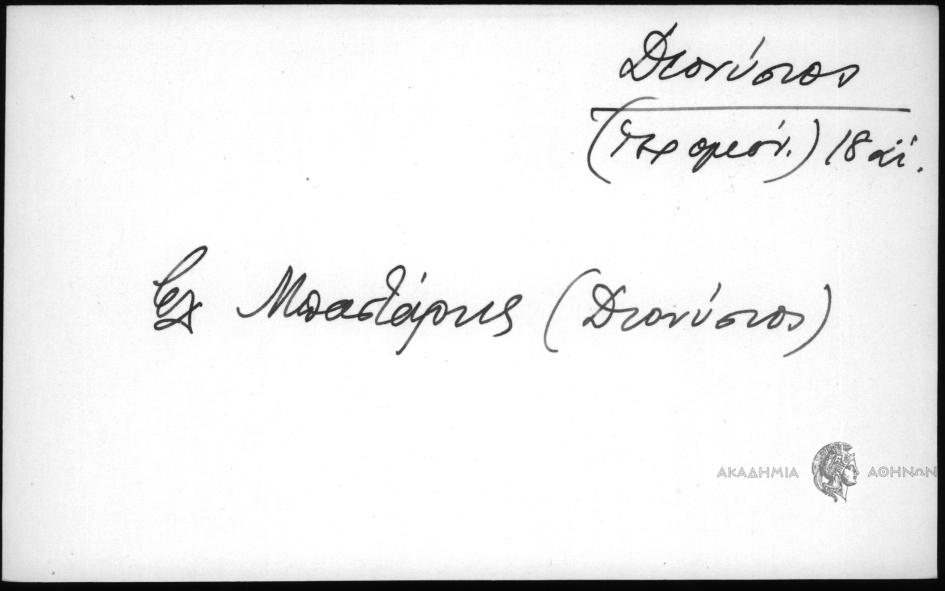 Διονύσιος
(Ἱερομόν.) 18 αἰ.
βλ Μπαστάρης (Διονύσιος)
ΑΚΑΔΗΜΙΑ ΑΘΗΝΩΝ